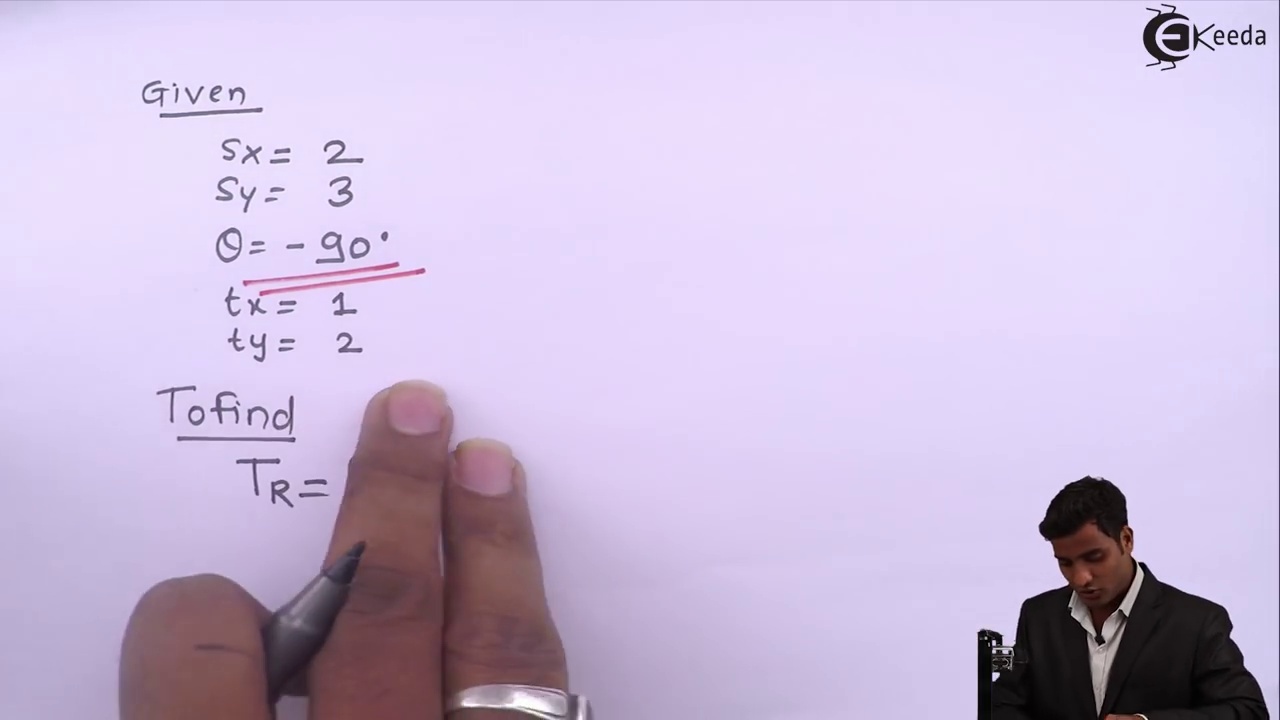 EKeeda
Given
Sx = 2
Sy = 3
θ = - 90°
tx = 1
ty = 2
To find
TR =